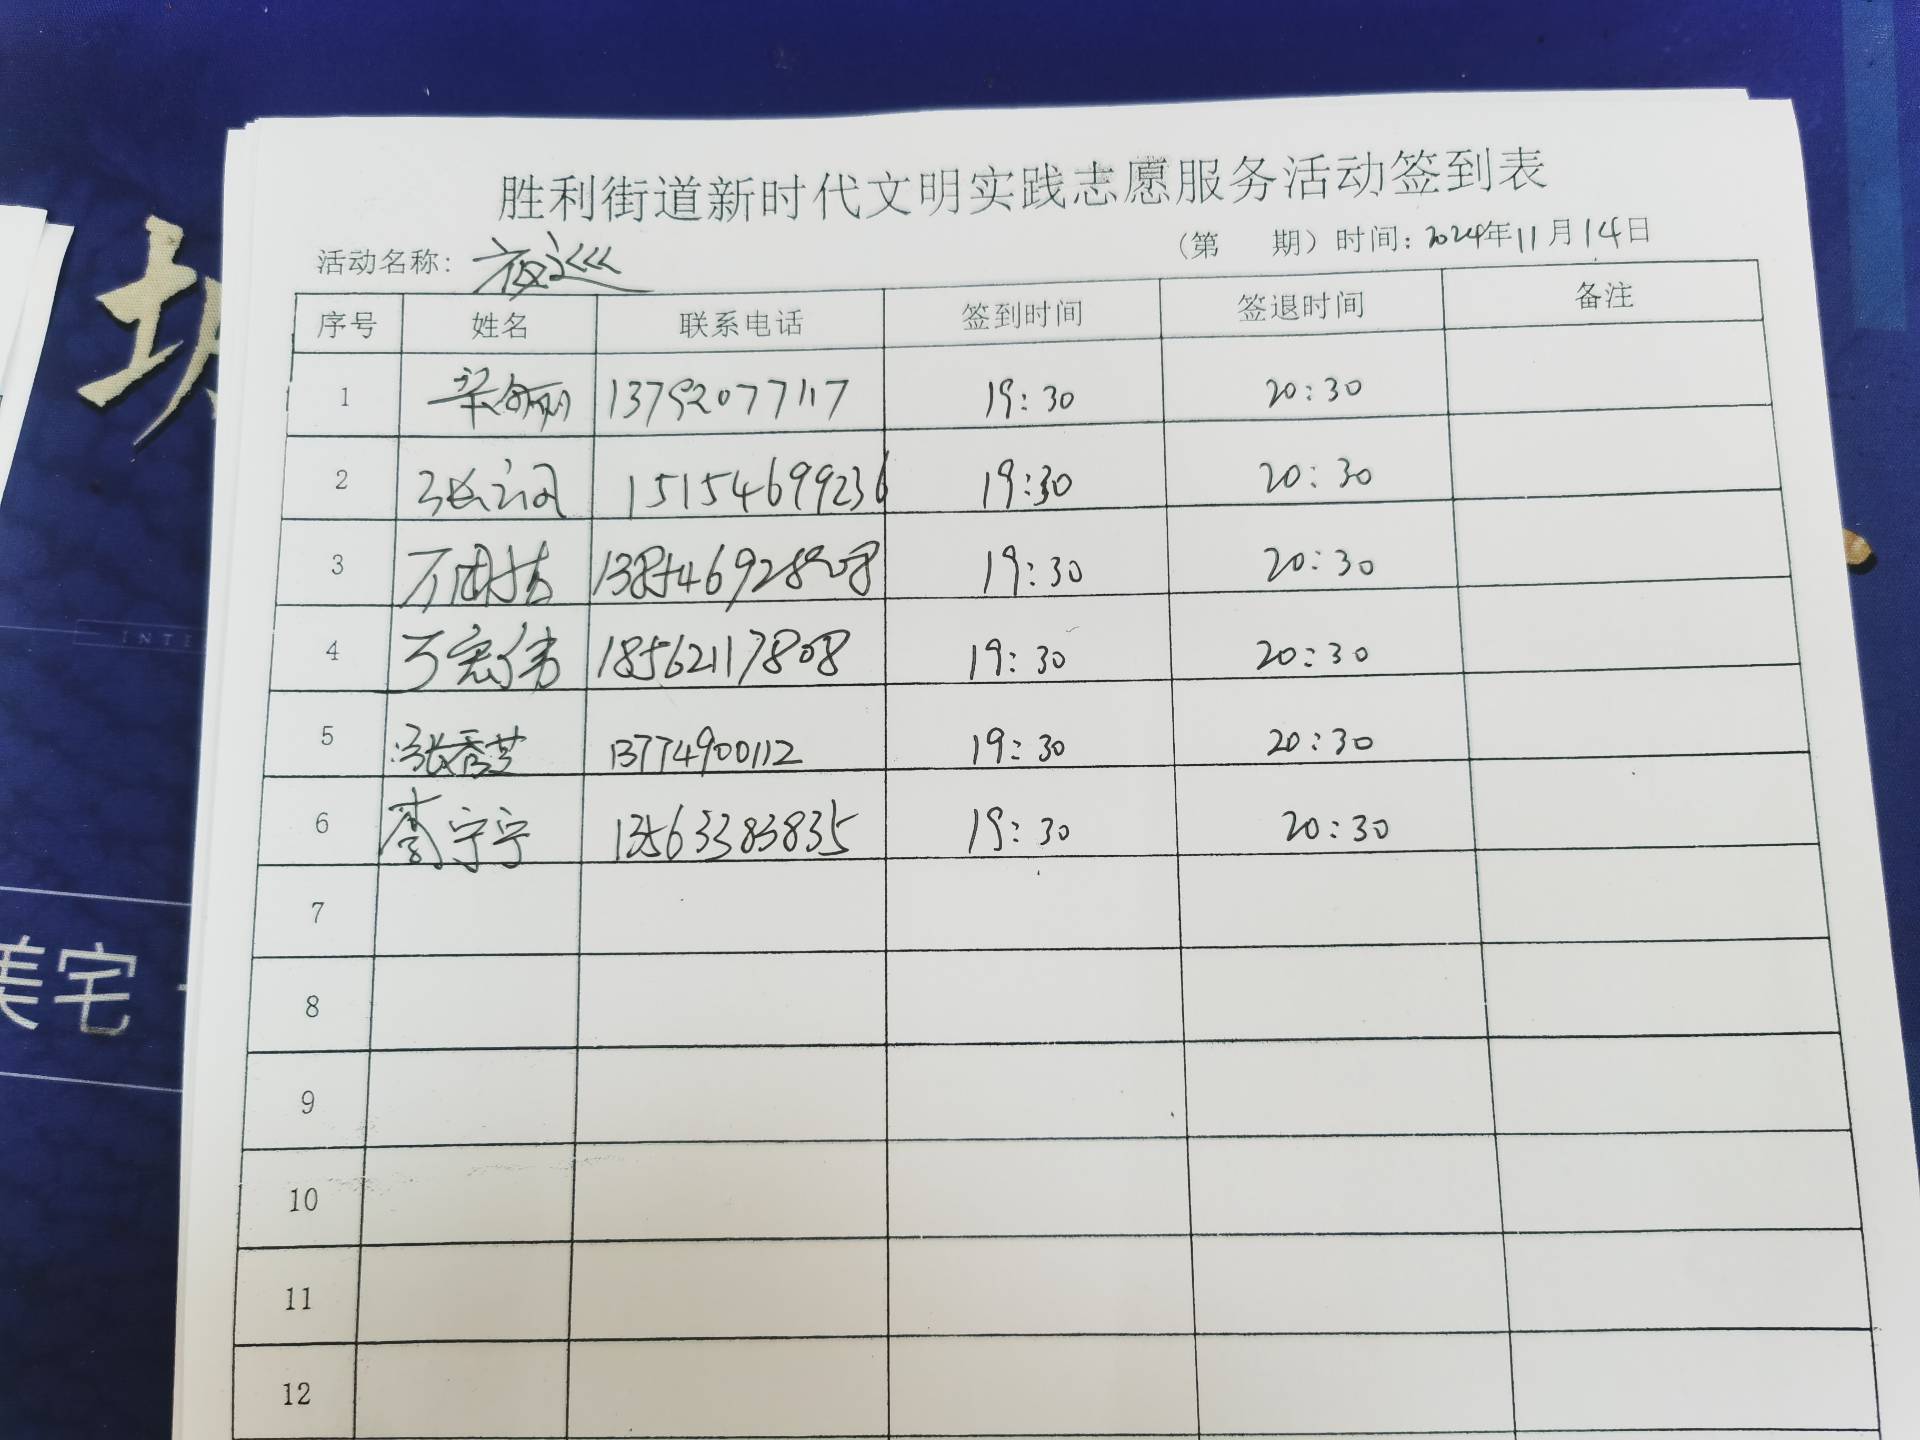 胜利街道新时代文明实践志愿服务活动签到表
活动名称: 夜巡 (第 期) 时间: 2024年11月14日
序号 姓名 联系电话 签到时间 签退时间 备注
1 13792077117 19:30 20:30
2 15154699236 19:30 20:30
3 19:30 20:30
4 万宏伟 18562117808 19:30 20:30
5 张秀芝 13774900112 19:30 20:30
6 李宁宁 13563383835 19:30 20:30
7
8
9
10
11
12
INTE
美宅